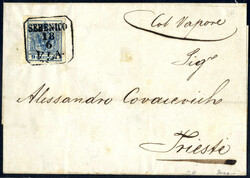 SEBENICO
18
6
Col Vapore
Sigr
Alessandro Covacevich
Trieste